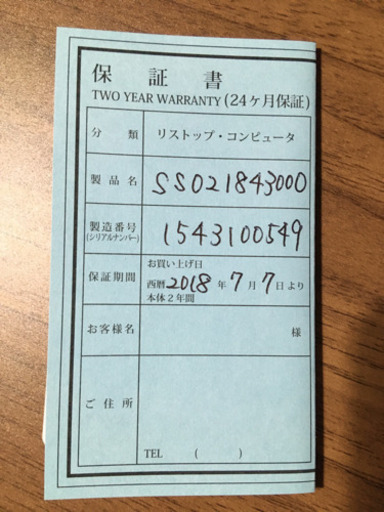 保証書
TWO YEAR WARRANTY (24ヶ月保証)
分類 リストップ・コンピュータ
製品名 SS021843000
製造番号 1543100549
(シリアルナンバー)
保証期間 お買い上げ日
西暦2018年7月7日より
本体2年間
お客様名 様
ご住所
TEL ( )